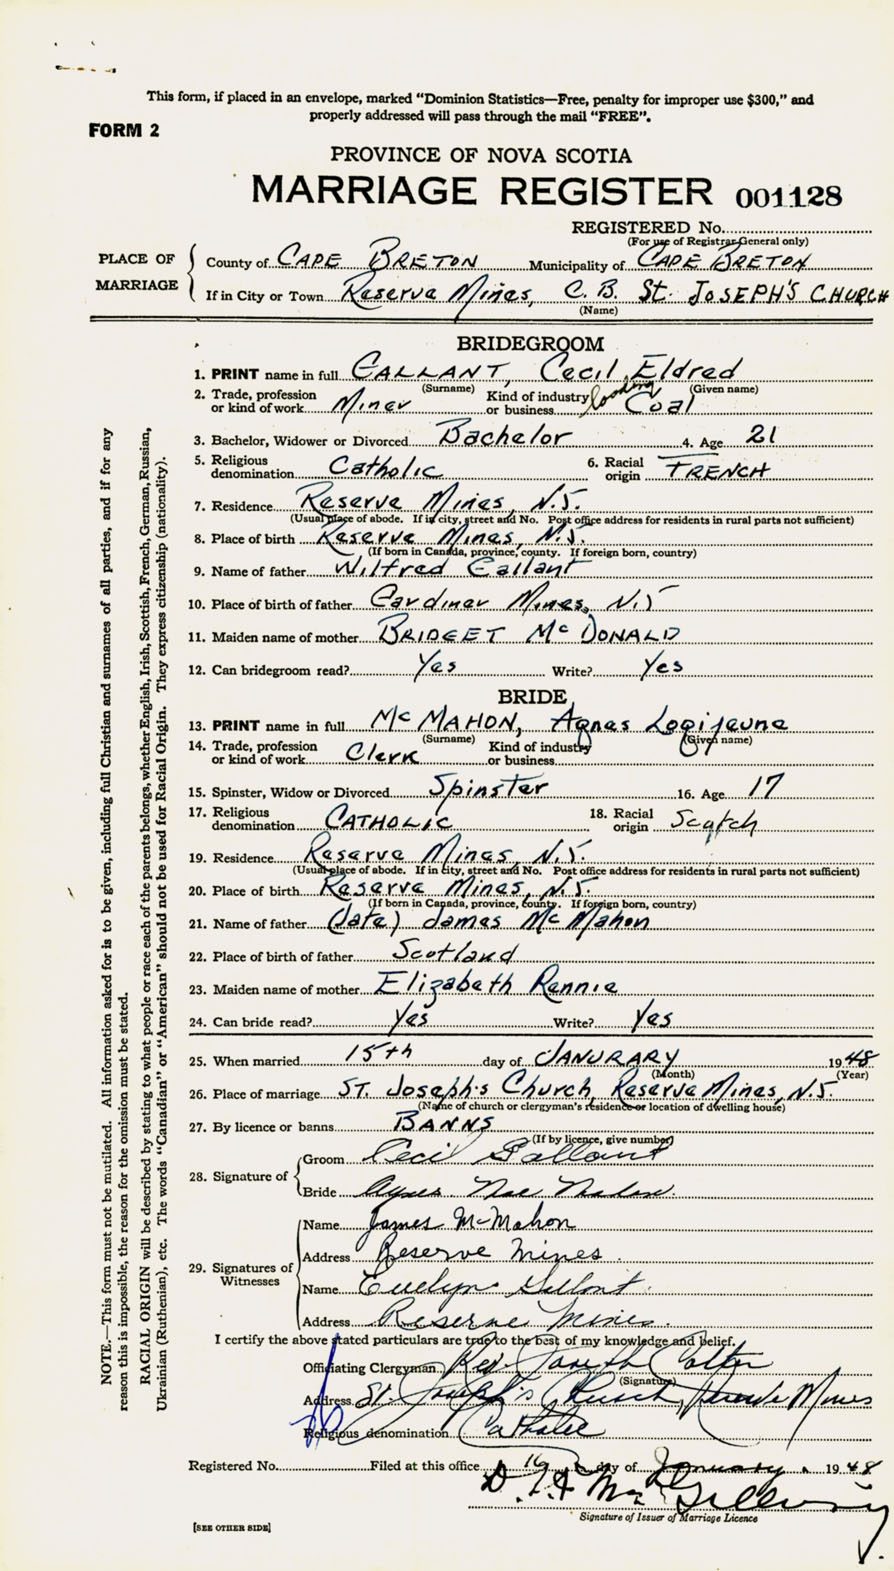 This form, if placed in an envelope, marked “Dominion Statistics—Free, penalty for improper use $300,” and
properly addressed will pass through the mail “FREE”.
FORM 2
PROVINCE OF NOVA SCOTIA
MARRIAGE REGISTER 001128
REGISTERED No.
(For use of Registrar General only)
PLACE OF MARRIAGE
County of CAPE BRETON Municipality of CAPE BRETON
If in City or Town Reserve Mines, C. B. St. JOSEPH'S CHURCH
(Name)
BRIDEGROOM
1. PRINT name in full GALLANT, Cecil Eldred
(Surname) (Given name)
2. Trade, profession or kind of work Miner Kind of industry or business loading Coal
3. Bachelor, Widower or Divorced Bachelor 4. Age 21
5. Religious denomination Catholic 6. Racial origin FRENCH
7. Residence Reserve Mines, N.S.
(Usual place of abode. If in city, street and No. Post office address for residents in rural parts not sufficient)
8. Place of birth Reserve Mines, N.S.
(If born in Canada, province, county. If foreign born, country)
9. Name of father Wilfred Gallant
10. Place of birth of father Gardiner Mines, N.S
11. Maiden name of mother BRIDGET McDONALD
12. Can bridegroom read? Yes Write? Yes
BRIDE
13. PRINT name in full McMAHON, Agnes
(Surname) (Given name)
14. Trade, profession or kind of work Clerk Kind of industry or business
15. Spinster, Widow or Divorced Spinster 16. Age 17
17. Religious denomination CATHOLIC 18. Racial origin Scotch
19. Residence Reserve Mines, N.S.
(Usual place of abode. If in city, street and No. Post office address for residents in rural parts not sufficient)
20. Place of birth Reserve Mines, N.S.
(If born in Canada, province, county. If foreign born, country)
21. Name of father (late) James McMahon
22. Place of birth of father Scotland
23. Maiden name of mother Elizabeth Rennie
24. Can bride read? Yes Write? Yes
25. When married 15th day of JANURARY 1948
(Month) (Year)
26. Place of marriage ST. Joseph's Church, Reserve Mines, N.S.
(Name of church or clergyman's residence or location of dwelling house)
27. By licence or banns BANNS
(If by licence, give number)
28. Signature of
Groom Cecil Gallant
Bride Agnes Mac Mahon.
29. Signatures of Witnesses
Name James McMahon
Address Reserve Mines.
Name Evelyn Gallant.
Address Reserve Mines.
I certify the above stated particulars are true to the best of my knowledge and belief.
Officiating Clergyman Rev. Joseph
(Signature)
Address St. Joseph's Church, Reserve Mines
Religious denomination Catholic
Registered No. Filed at this office 16 day of January. 1948
D. MacGillivray
Signature of Issuer of Marriage Licence
[SEE OTHER SIDE]
NOTE.—This form must not be mutilated. All information asked for is to be given, including full Christian and surnames of all parties, and if for any
reason this is impossible, the reason for the omission must be stated.
RACIAL ORIGIN will be described by stating to what people or race each of the parents belongs, whether English, Irish, Scottish, French, German, Russian,
Ukrainian (Ruthenian), etc. The words “Canadian” or “American” should not be used for Racial Origin. They express citizenship (nationality).